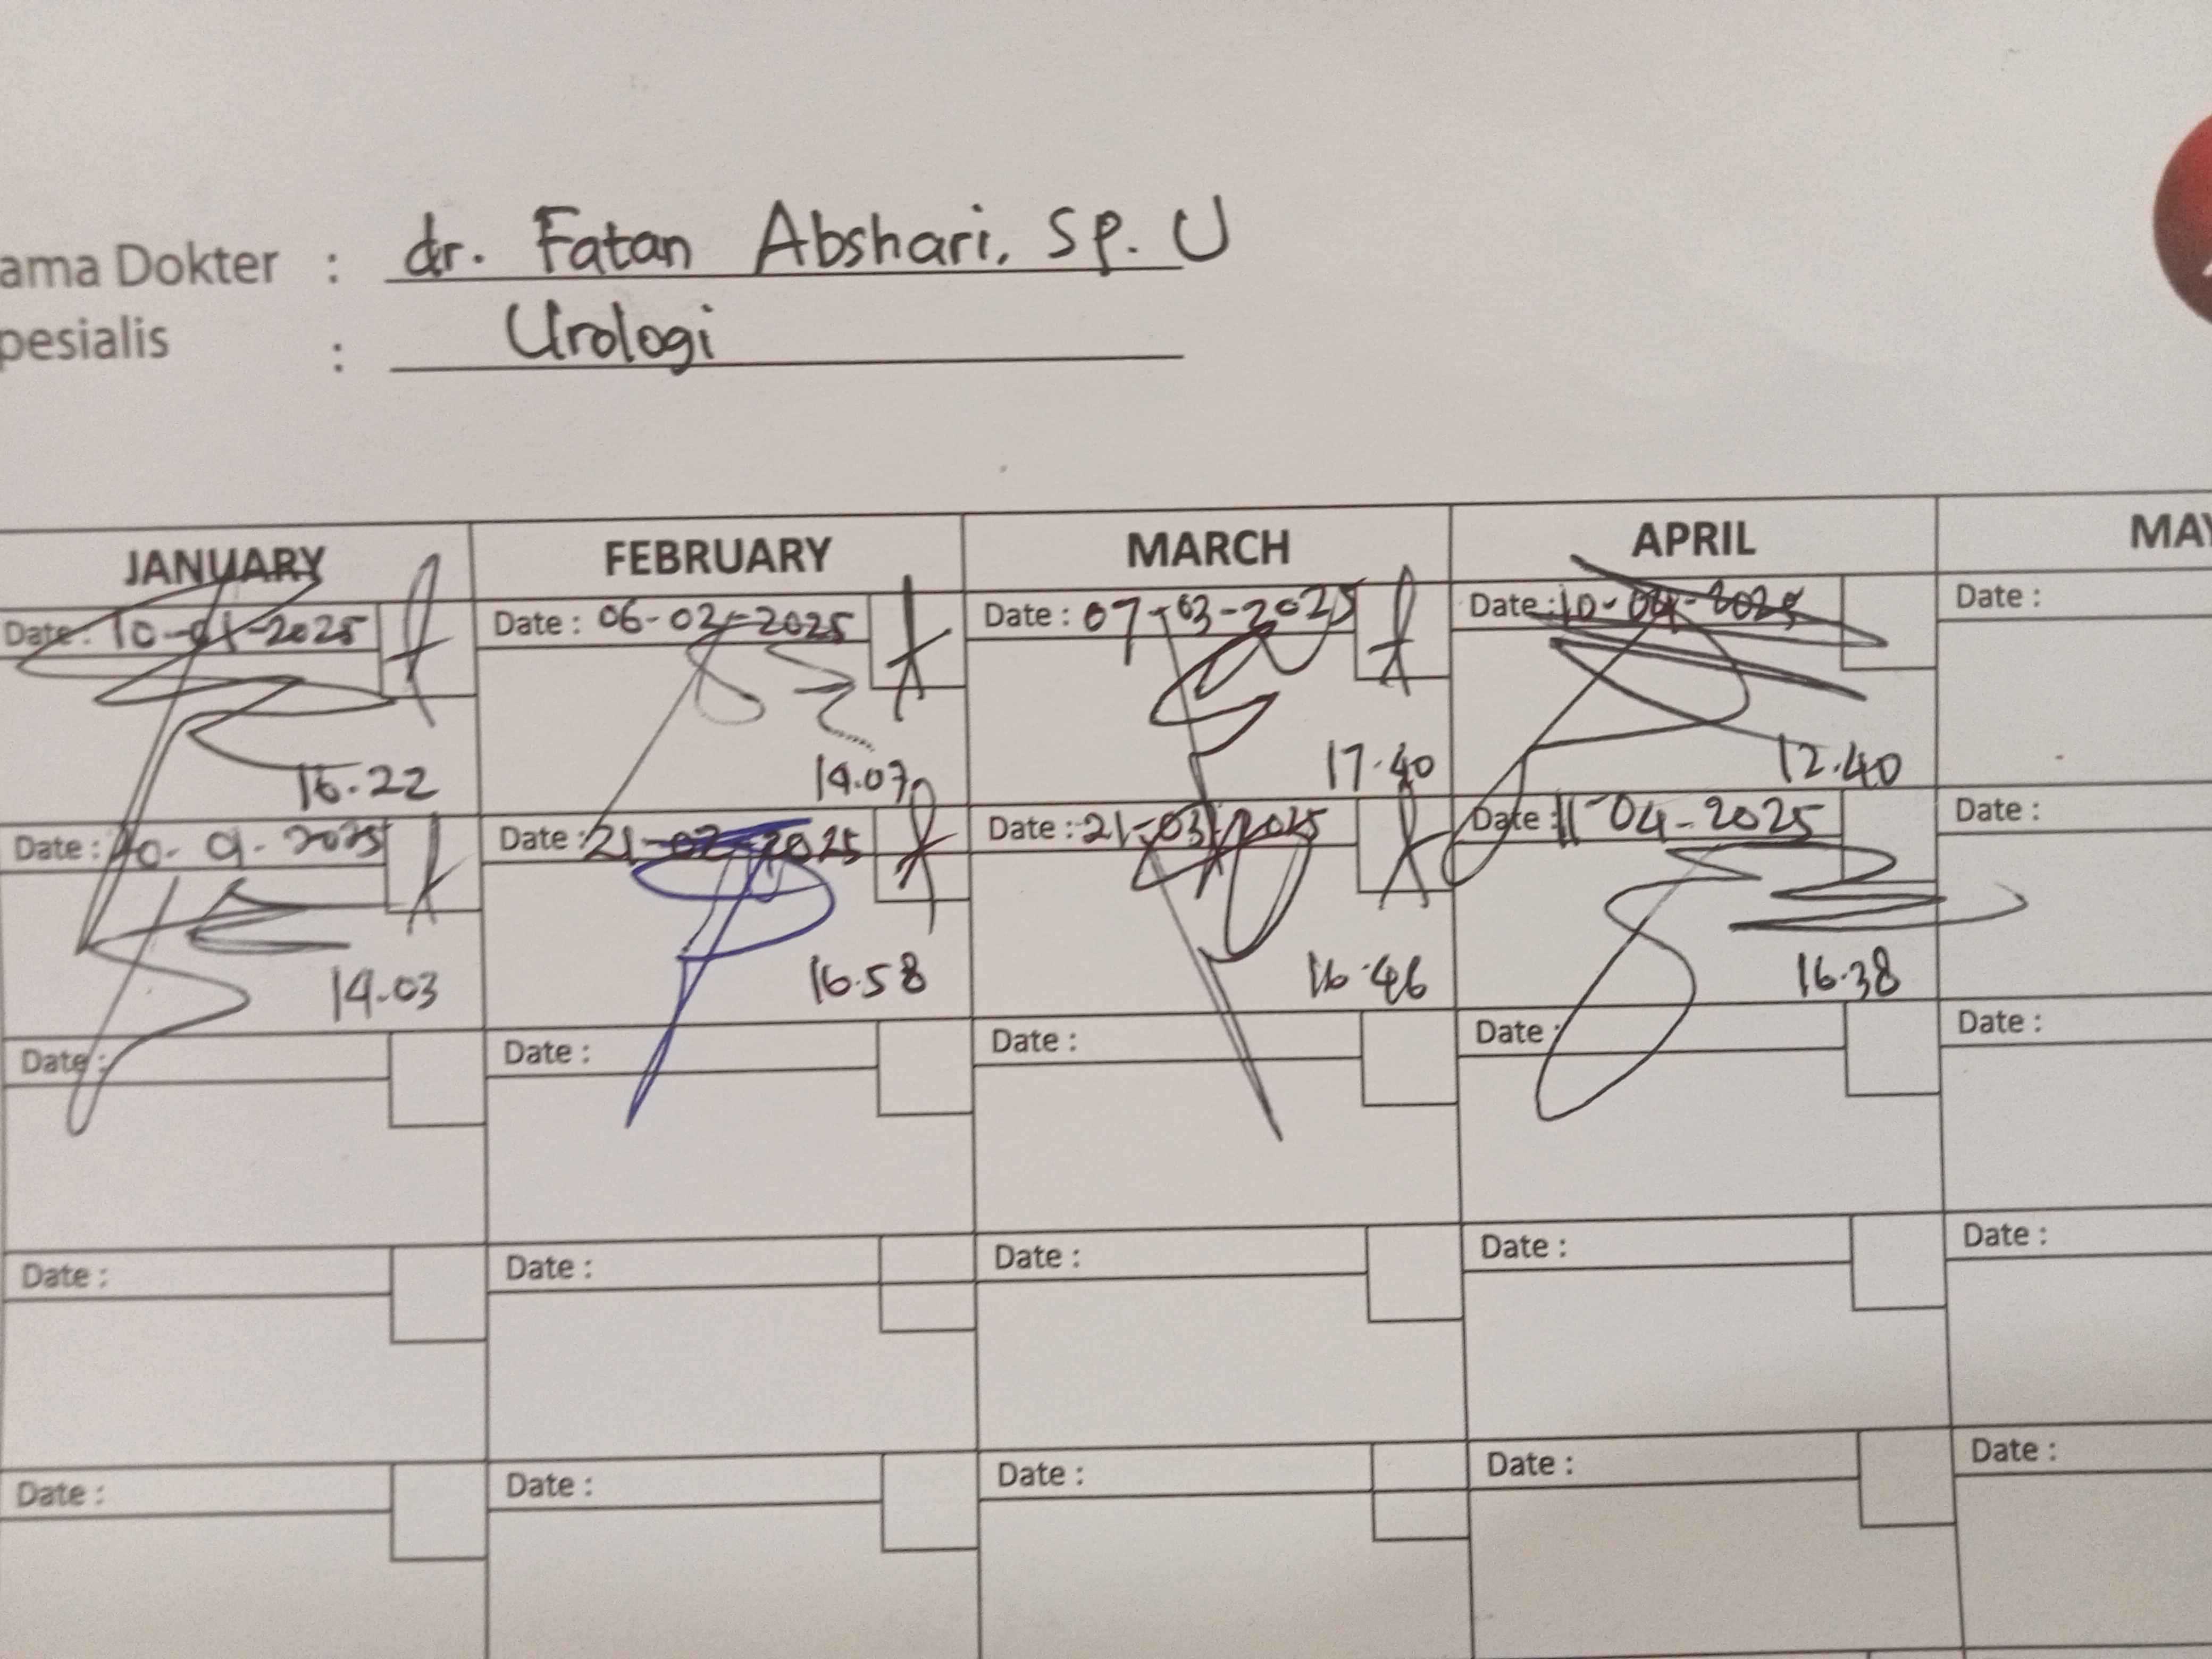 ama Dokter : dr. Fatan Abshari, Sp. U
pesialis : Urologi
JANUARY FEBRUARY MARCH APRIL MAY
Date : 10-01-2025 Date : 06-02-2025 Date : 07-03-2025 Date : 10-04-2025 Date :
14.07 17.40 12.40
Date : Date : 21-02-2025 Date : 21-03-2025 Date : 11-04-2025 Date :
14.03 16.58 16.46 16.38
Date : Date : Date : Date : Date :
Date : Date : Date : Date : Date :
Date : Date : Date : Date : Date :